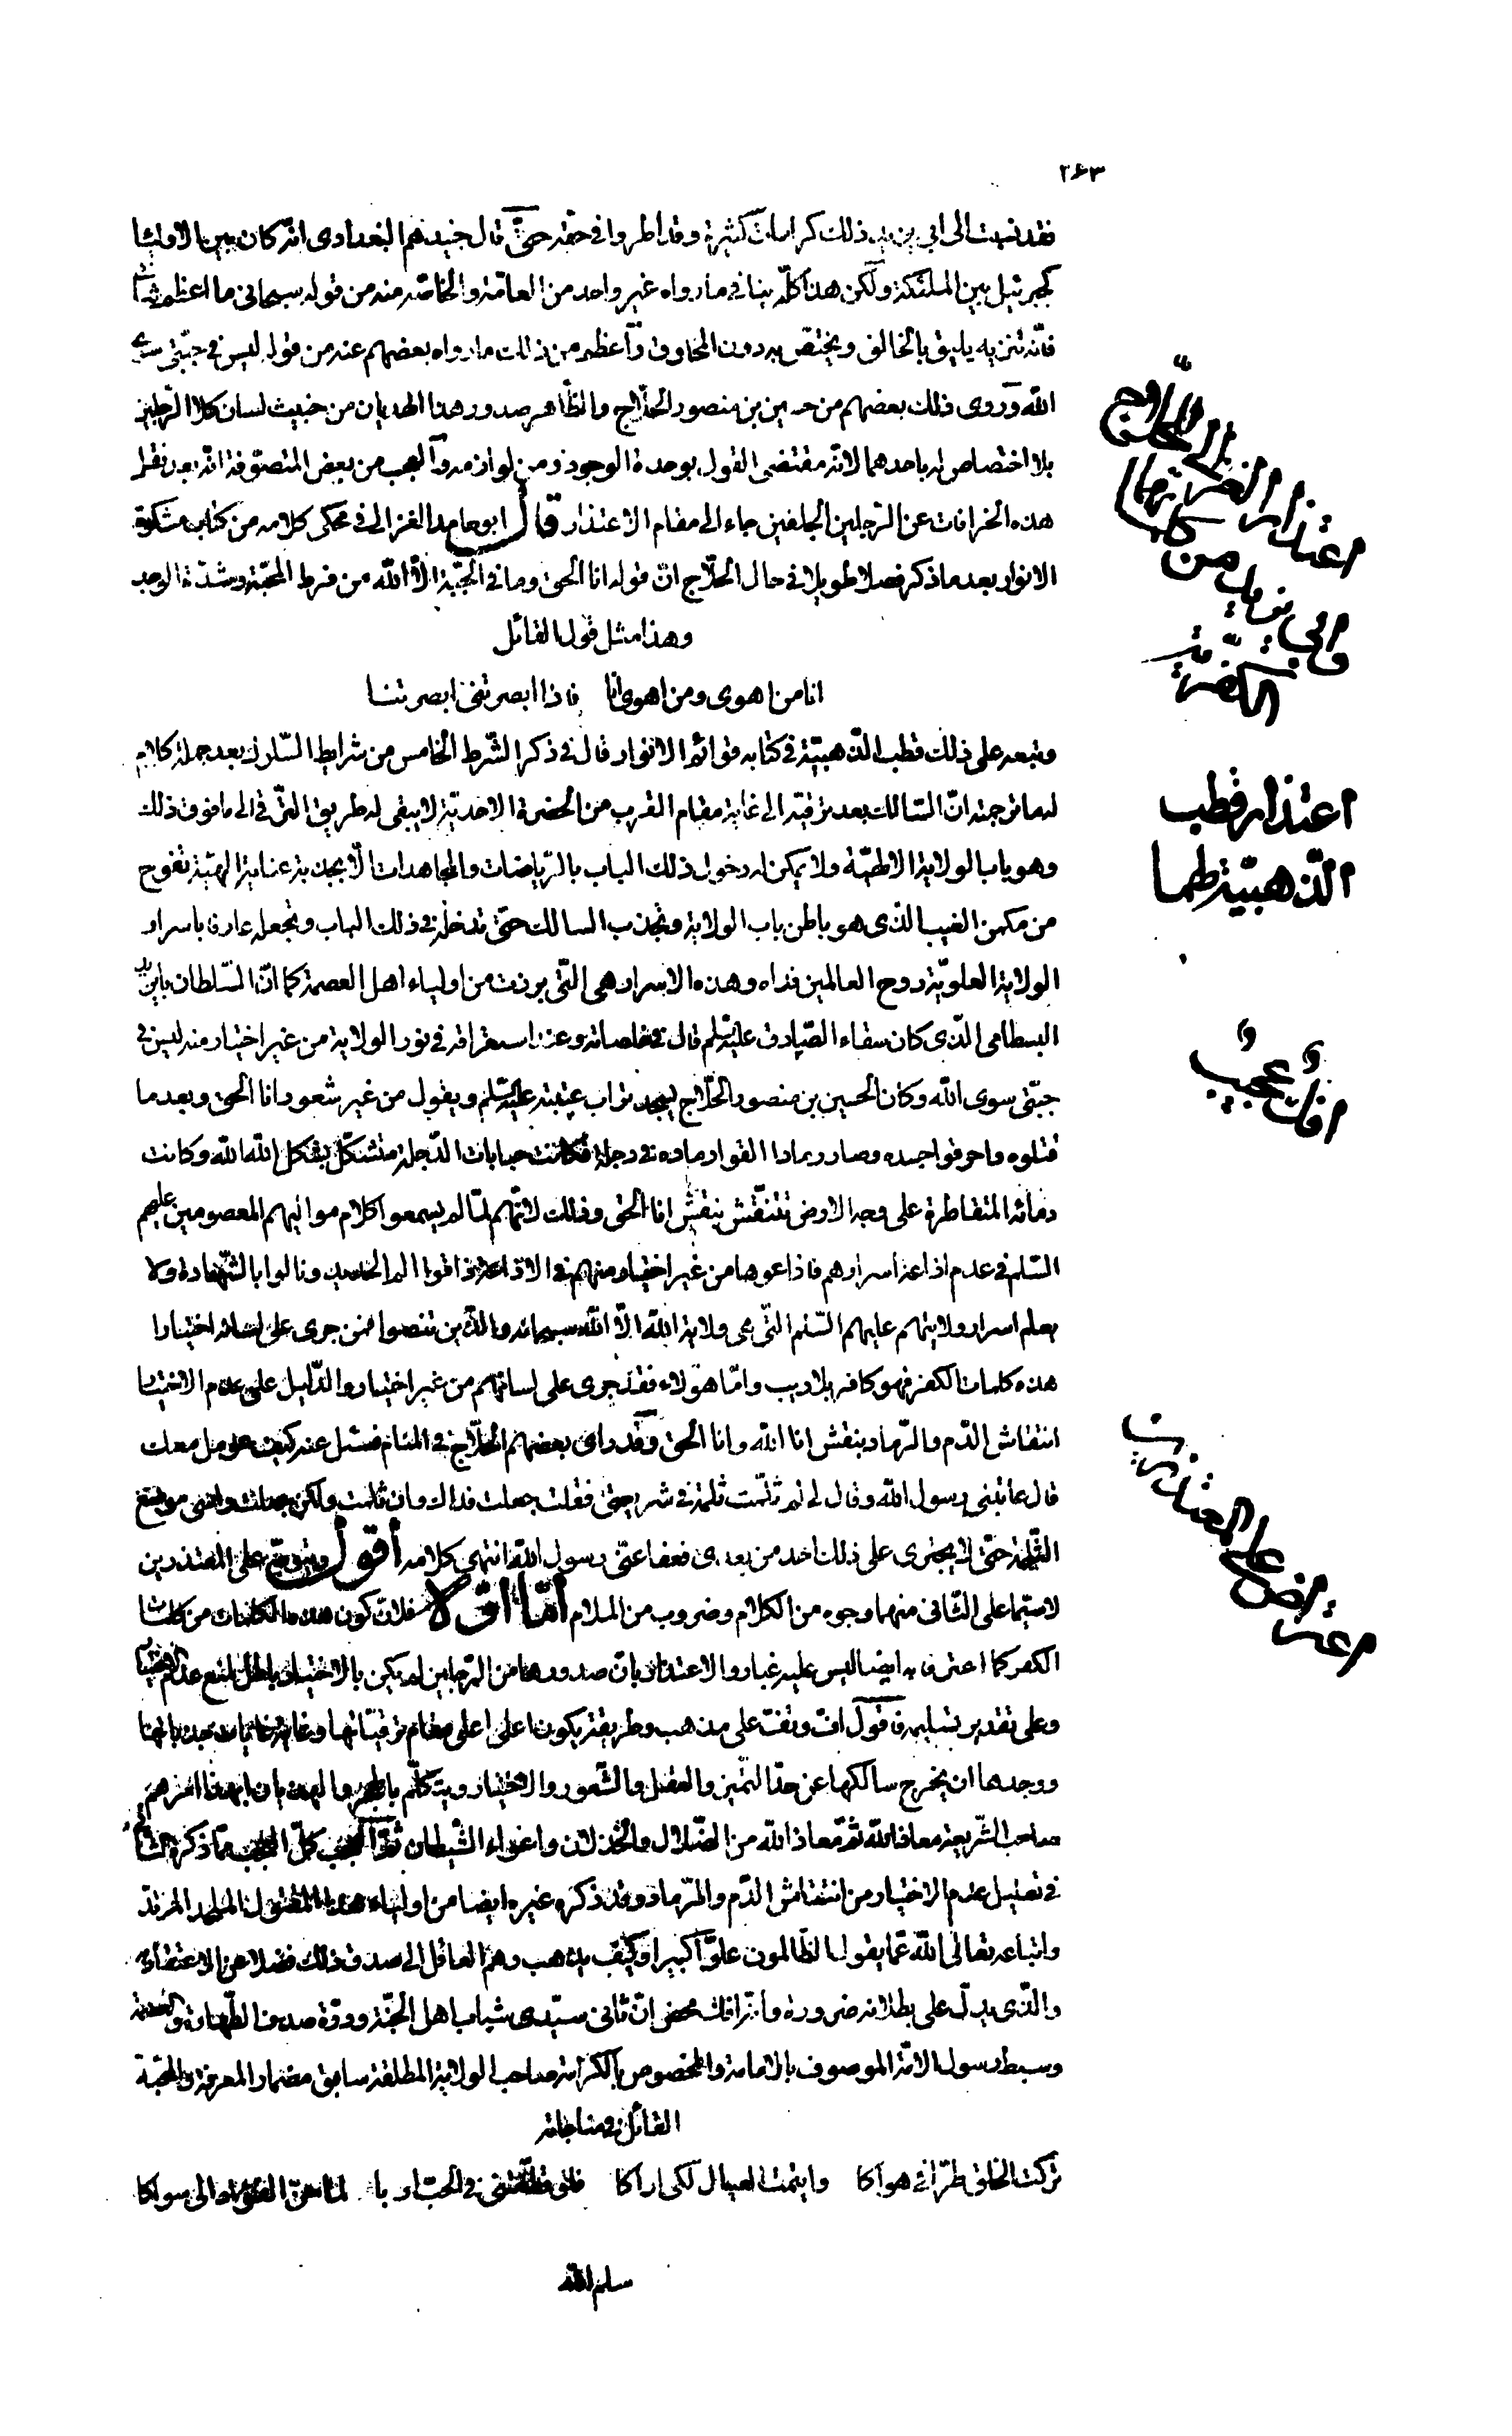 ٢٦٣
فقد نسبت الى ابي يزيد ذلك كرامات كثيرة وقد اطروا في حقه حتى قال جنيدهم البغدادى انه كان بين الاولياء
كجبرئيل بين الملئكة ولكن هذا كلّه ينافى ما رواه غير واحد من العامّة والخاصّة منه من قوله سبحانى ما اعظم شأنى
فانّه تنزيه يليق بالخالق ويختصّ به دون المخلوق وأعظم من ذلك ما رواه بعضهم عنه من قوله ليس في جبّتى سوى
الله وروى ذلك بعضهم من حسين بن منصور الحلّاج والظّاهر صدور هذا الهذيان من خبيث لسان كلا الرّجلين
بلا اختصاص له باحدهما لانّه مقتضى القول بوحدة الوجود ومن لوازمه والعجب من بعض المتصوّفة انّه بعد نقل
هذه الخرافات عن الرّجلين الجلفين جاء الى مقام الاعتذار قال ابو حامد الغزالى في محكى كلامه من كتاب مشكوة
الانوار بعد ما ذكر فصلا طويلا في حال الحلّاج انّ قوله انا الحق وما في الجبّة الّا الله من فرط المحبّة وشدّة الوجد
وهذا مثل قول القائل
انا من اهوى ومن اهوى انا فاذا ابصرتنى ابصرتنا
وتبعه على ذلك قطب الذّهبيّة في كتابه قوائم الانوار قال في ذكر الشّرط الخامس من شرايط السّلوك بعد جملة كلام
له ما ترجمته انّ السّالك بعد ترقيه الى غاية مقام القرب من الحضرة الاحديّة لا يبقى له طريق الترقّى الى ما فوق ذلك
وهو باب الولاية الالهيّة ولا يمكن له دخول ذلك الباب بالرّياضات والمجاهدات الّا بجذبة عناية الهيّة تفوح
من مكمن الغيب الذى هو باطن باب الولاية وتجذب السالك حتى تدخله في ذلك الباب وتجعله عارفا باسرار
الولاية العلويّة روح العالمين فداه وهذه الاسرار هى التّى برزت من اولياء اهل العصمة كما انّ السّلطان بايزيد
البسطامى الذى كان سقاء الصّادق عليه السلم قال في خلصاته وعند استغراقه في نور الولاية من غير اختيار منه ليس في
جبّتى سوى الله وكان الحسين بن منصور الحلّاج يسجد تراب عتبته عليه السّلم ويقول من غير شعور انا الحق وبعد ما
قتلوه واحرقوا جسده وصار رمادا القوا رماده في دجلة فكانت حبابات الدّجلة متشكّل بشكل الله الله وكانت
دمائه المتقاطرة على وجه الارض تتنقّش بنقش انا الحق وذلك لانّهم لمّا لم يسمعوا كلام مواليهم المعصومين عليهم
السّلم في عدم اذاعة اسرارهم فاذاعوها من غير اختيار منهم في الاذاعة ذاقوا الم الحديد ونالوا بالشّهادة ولا
يعلم اسرار ولايتهم عليهم السّلم التّى هى ولاية الله الّا الله سبحانه والذين تنصوا فمن جرى على لسانه اختيارا
هذه كلمات الكفر فهو كافر بلا ريب وامّا هؤلاء فقد جرى على لسانهم من غير اختيار والدّليل على عدم الاختيار
انتقاش الدّم والرّماد بنقش انا الله وانا الحق وقد راى بعضهم الحلّاج في المنام فسئل عنه كيف عومل معك
قال عاتبنى رسول الله وقال لى لم ثلّمت ثلمة في شريعتى فقلت جعلت فداك وان ثلمت ولكن جعلت راسى موضع
الثّلمة حتى لا يجترى على ذلك احد من بعدى فعفا عنّى رسول الله انتهى كلامه أقول ويتوجّه على المعتذرين
لا سيّما على الثّانى منهما وجوه من الكلام وضروب من الملام أمّا اوّلا فلانّ كون هذه الكلمات من كلمات
الكفر كما اعترفا به ايضا ليس عليه غبار والاعتذار بان صدورها من الرّجلين لم يكن بالاختيار باطل لمنع عدم الاختيار
وعلى تقدير تسليمه فاقول افّ وتفّ على مذهب وطريقة يكون اعلى اعلى مقام ترقيّاتها وغاية غايات جذباتها
ووجدها ان يخرج سالكها عن حدّ التّميز والعقل والشّعور والاختيار ويتكلّم بالهجر والهذيان ابهذا امرهم
صاحب الشّريعة معاذ الله ثمّ معاذ الله من الضّلال والخذلان واغواء الشّيطان ثمّ العجب كلّ العجب ممّا ذكره الثّانى
في تعليل عدم الاختيار من انتقاش الدّم والرّماد وقد ذكره غيره ايضا من اولياء هذا المقتول الملحد المرتدّ
واتباعه تعالى الله عمّا يقول الظّالمون علوّا كبيرا وكيف يذهب وهم العاقل الى صدق ذلك فضلا عن الاعتقاد به
والذى يدلّ على بطلانه ضرورة وانّه افك محض انّ ثانى سيّدى شباب اهل الجنّة ودرّة صدف الطّهارة والعصمة
وسبط رسول الامّة الموصوف بالامامة والمخصوص بالكرامة صاحب الولاية المطلقة سابق مضمار المعرفة والمحبّة
القائل في مناجاته
تركت الخلق طرّا في هواكا وايتمت العيال لكى اراكا فلو قطّعتنى في الحبّ اربا لما حنّ الفؤاد الى سواكا
سلم الله
اعتذار الغزالى للحلّاج
وابى يزيد من كلماتهما
الكفرية
اعتذار قطب
الذّهبيّة لهما
افك عجيب
اعتراض على المعتذرين